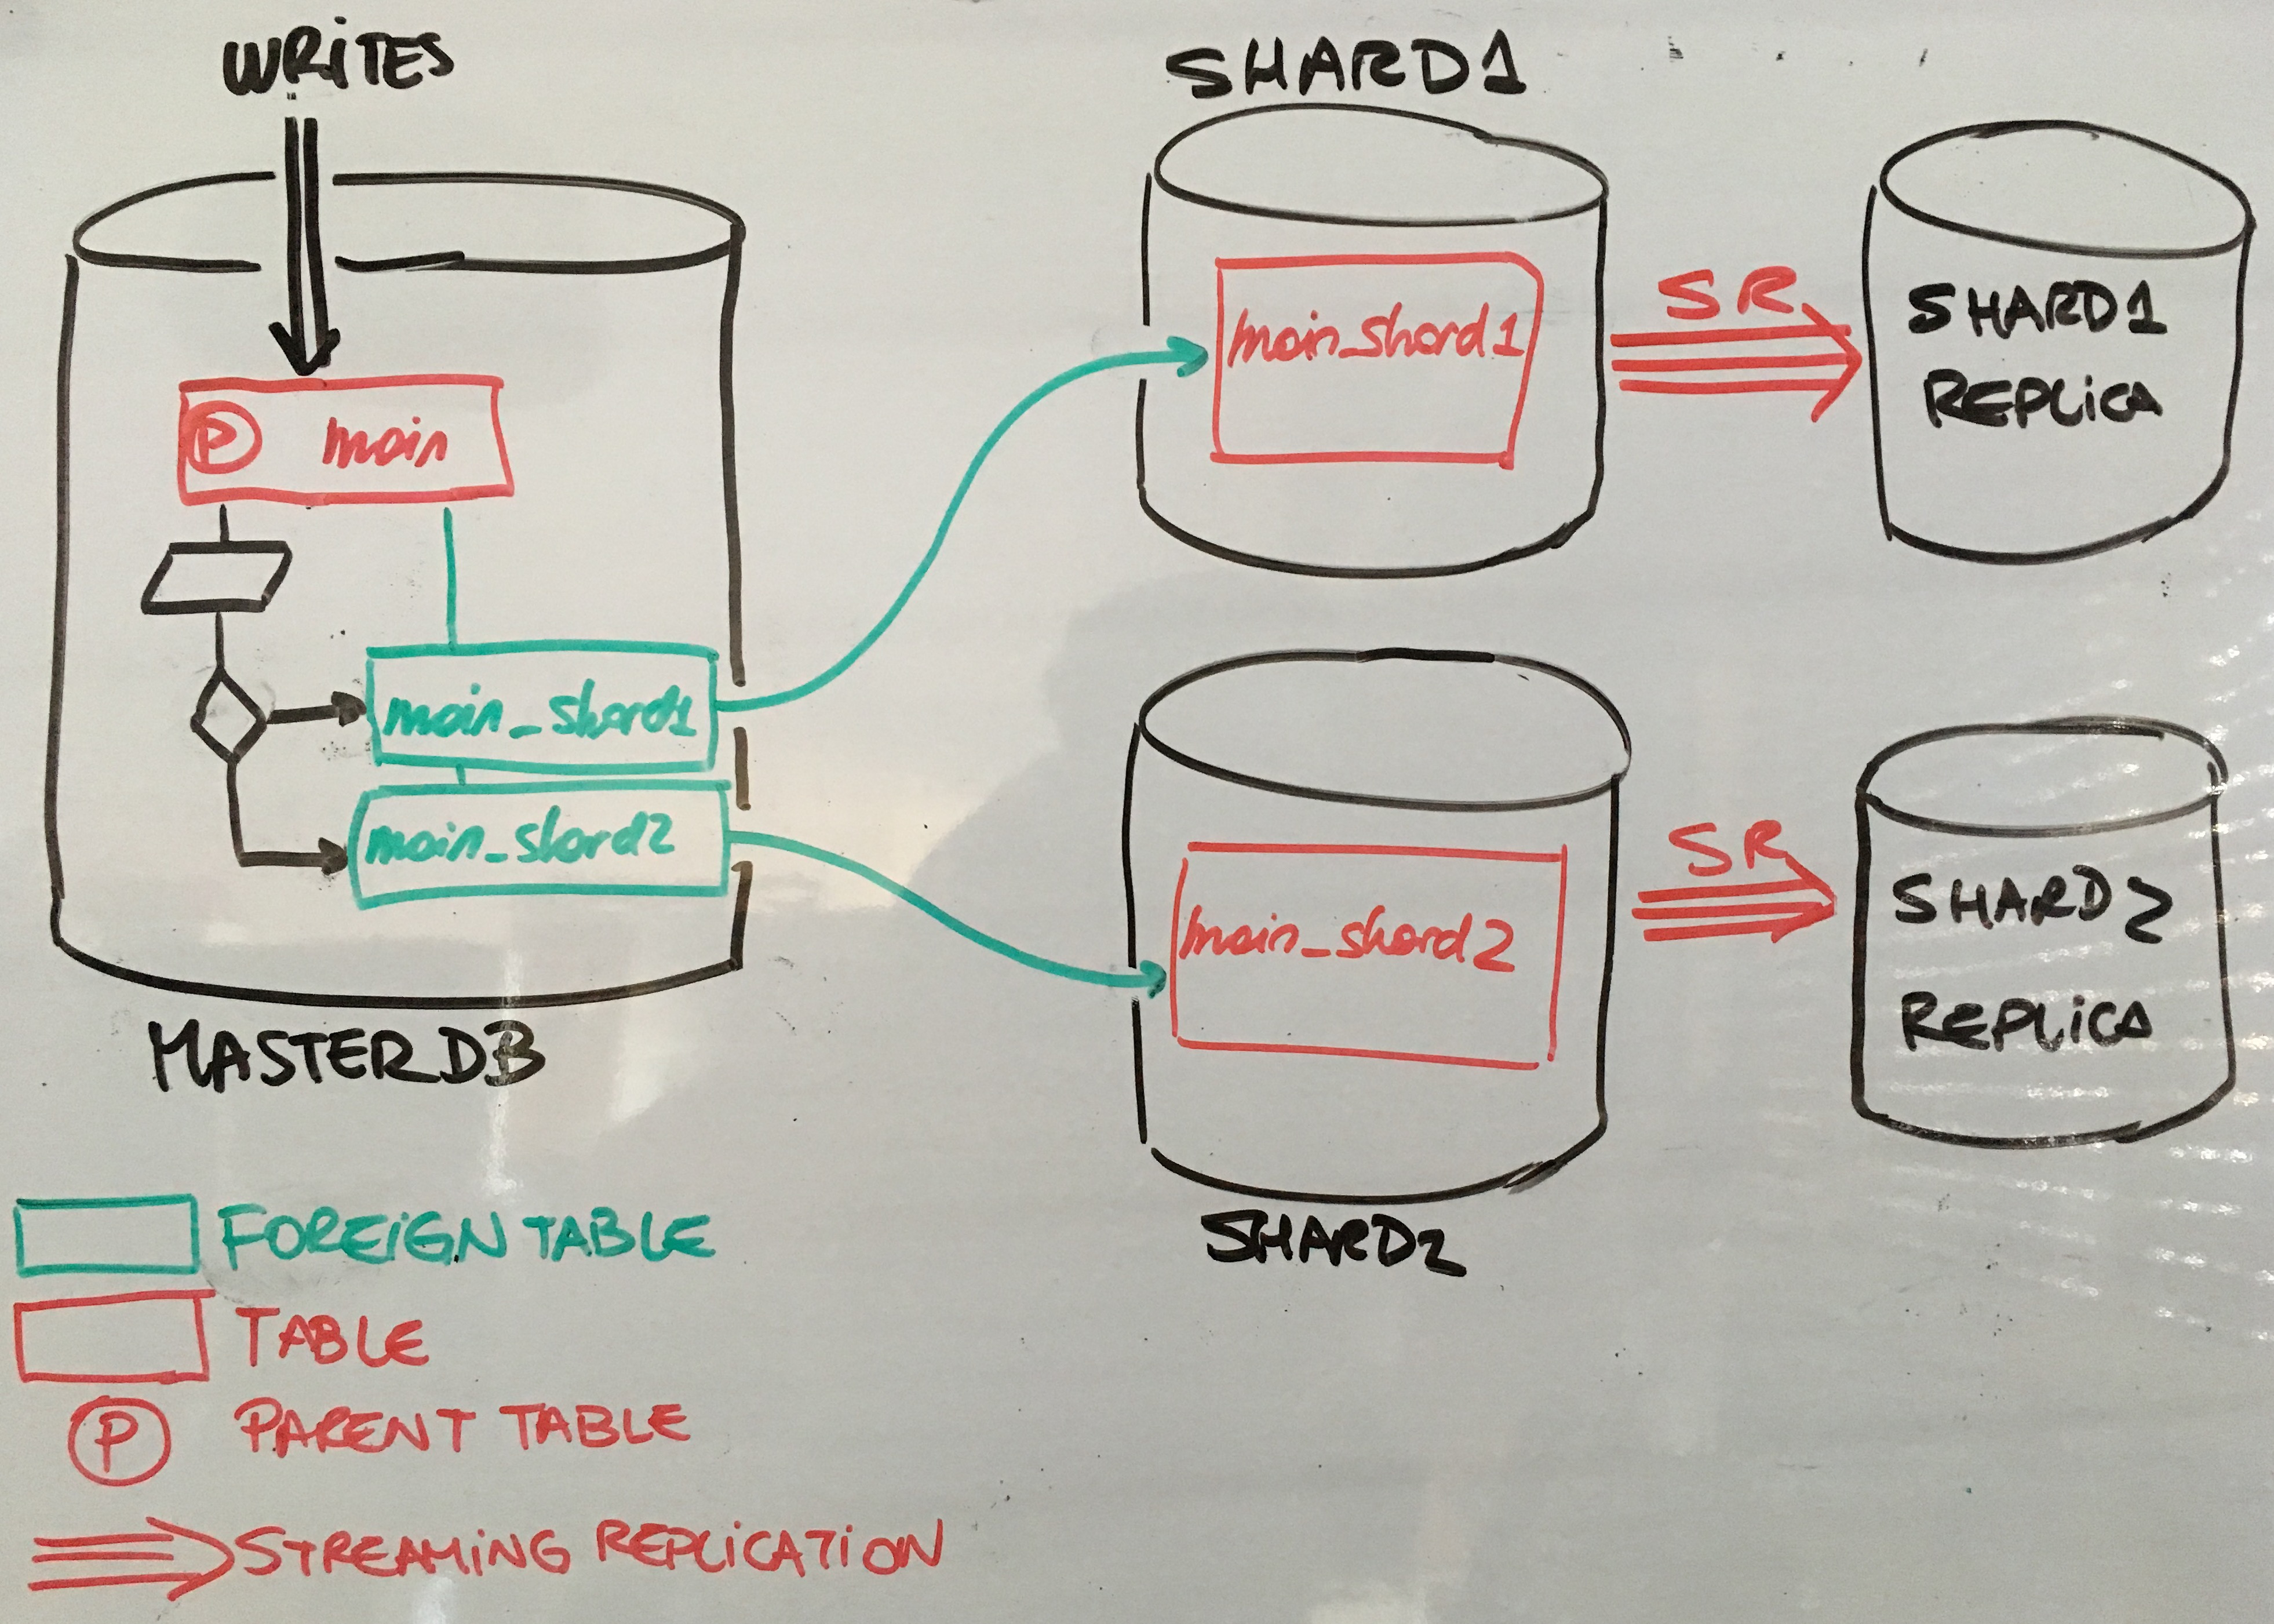 WRITES
P main
main_shard1
main_shard2
MASTER DB
SHARD1
main_shard1
SR
SHARD1
REPLICA
main_shard2
SHARD2
SR
SHARD2
REPLICA
FOREIGN TABLE
TABLE
P PARENT TABLE
STREAMING REPLICATION